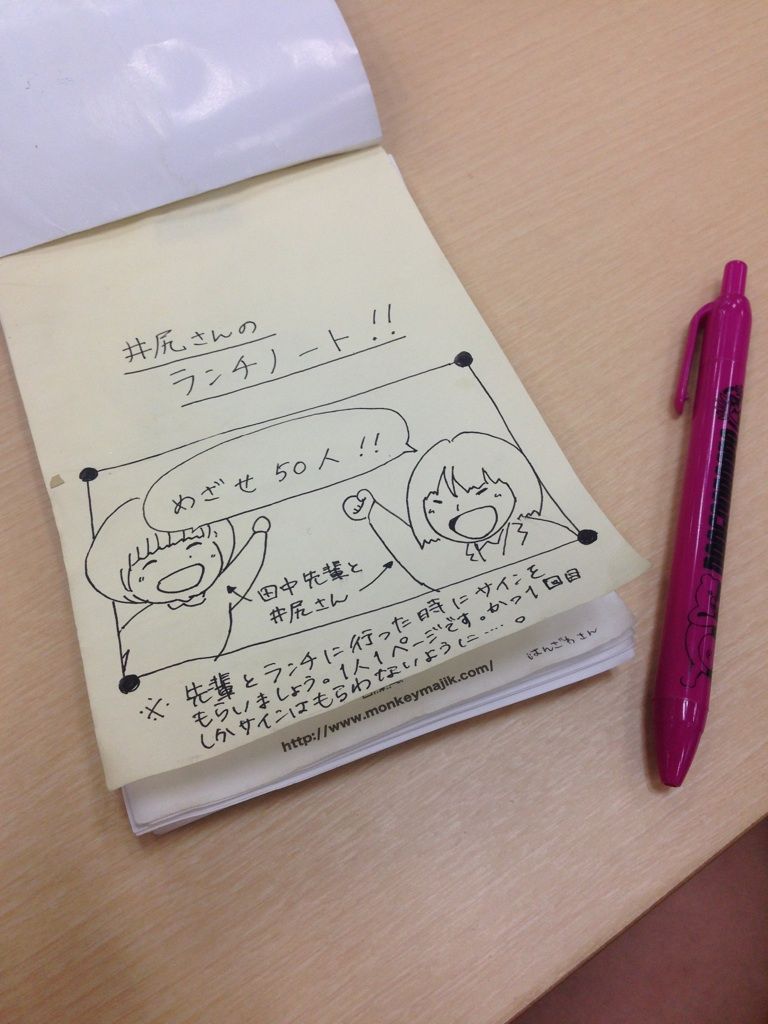 井尻さんの
ランチノート!!
めざせ 50人!!
田中先輩と
井尻さん
※ 先輩とランチに行った時にサインを
もらいましょう。1人1ページです。かつ1回目
しかサインはもらわないように……。
http://www.monkeymajik.com/
はんざわさん